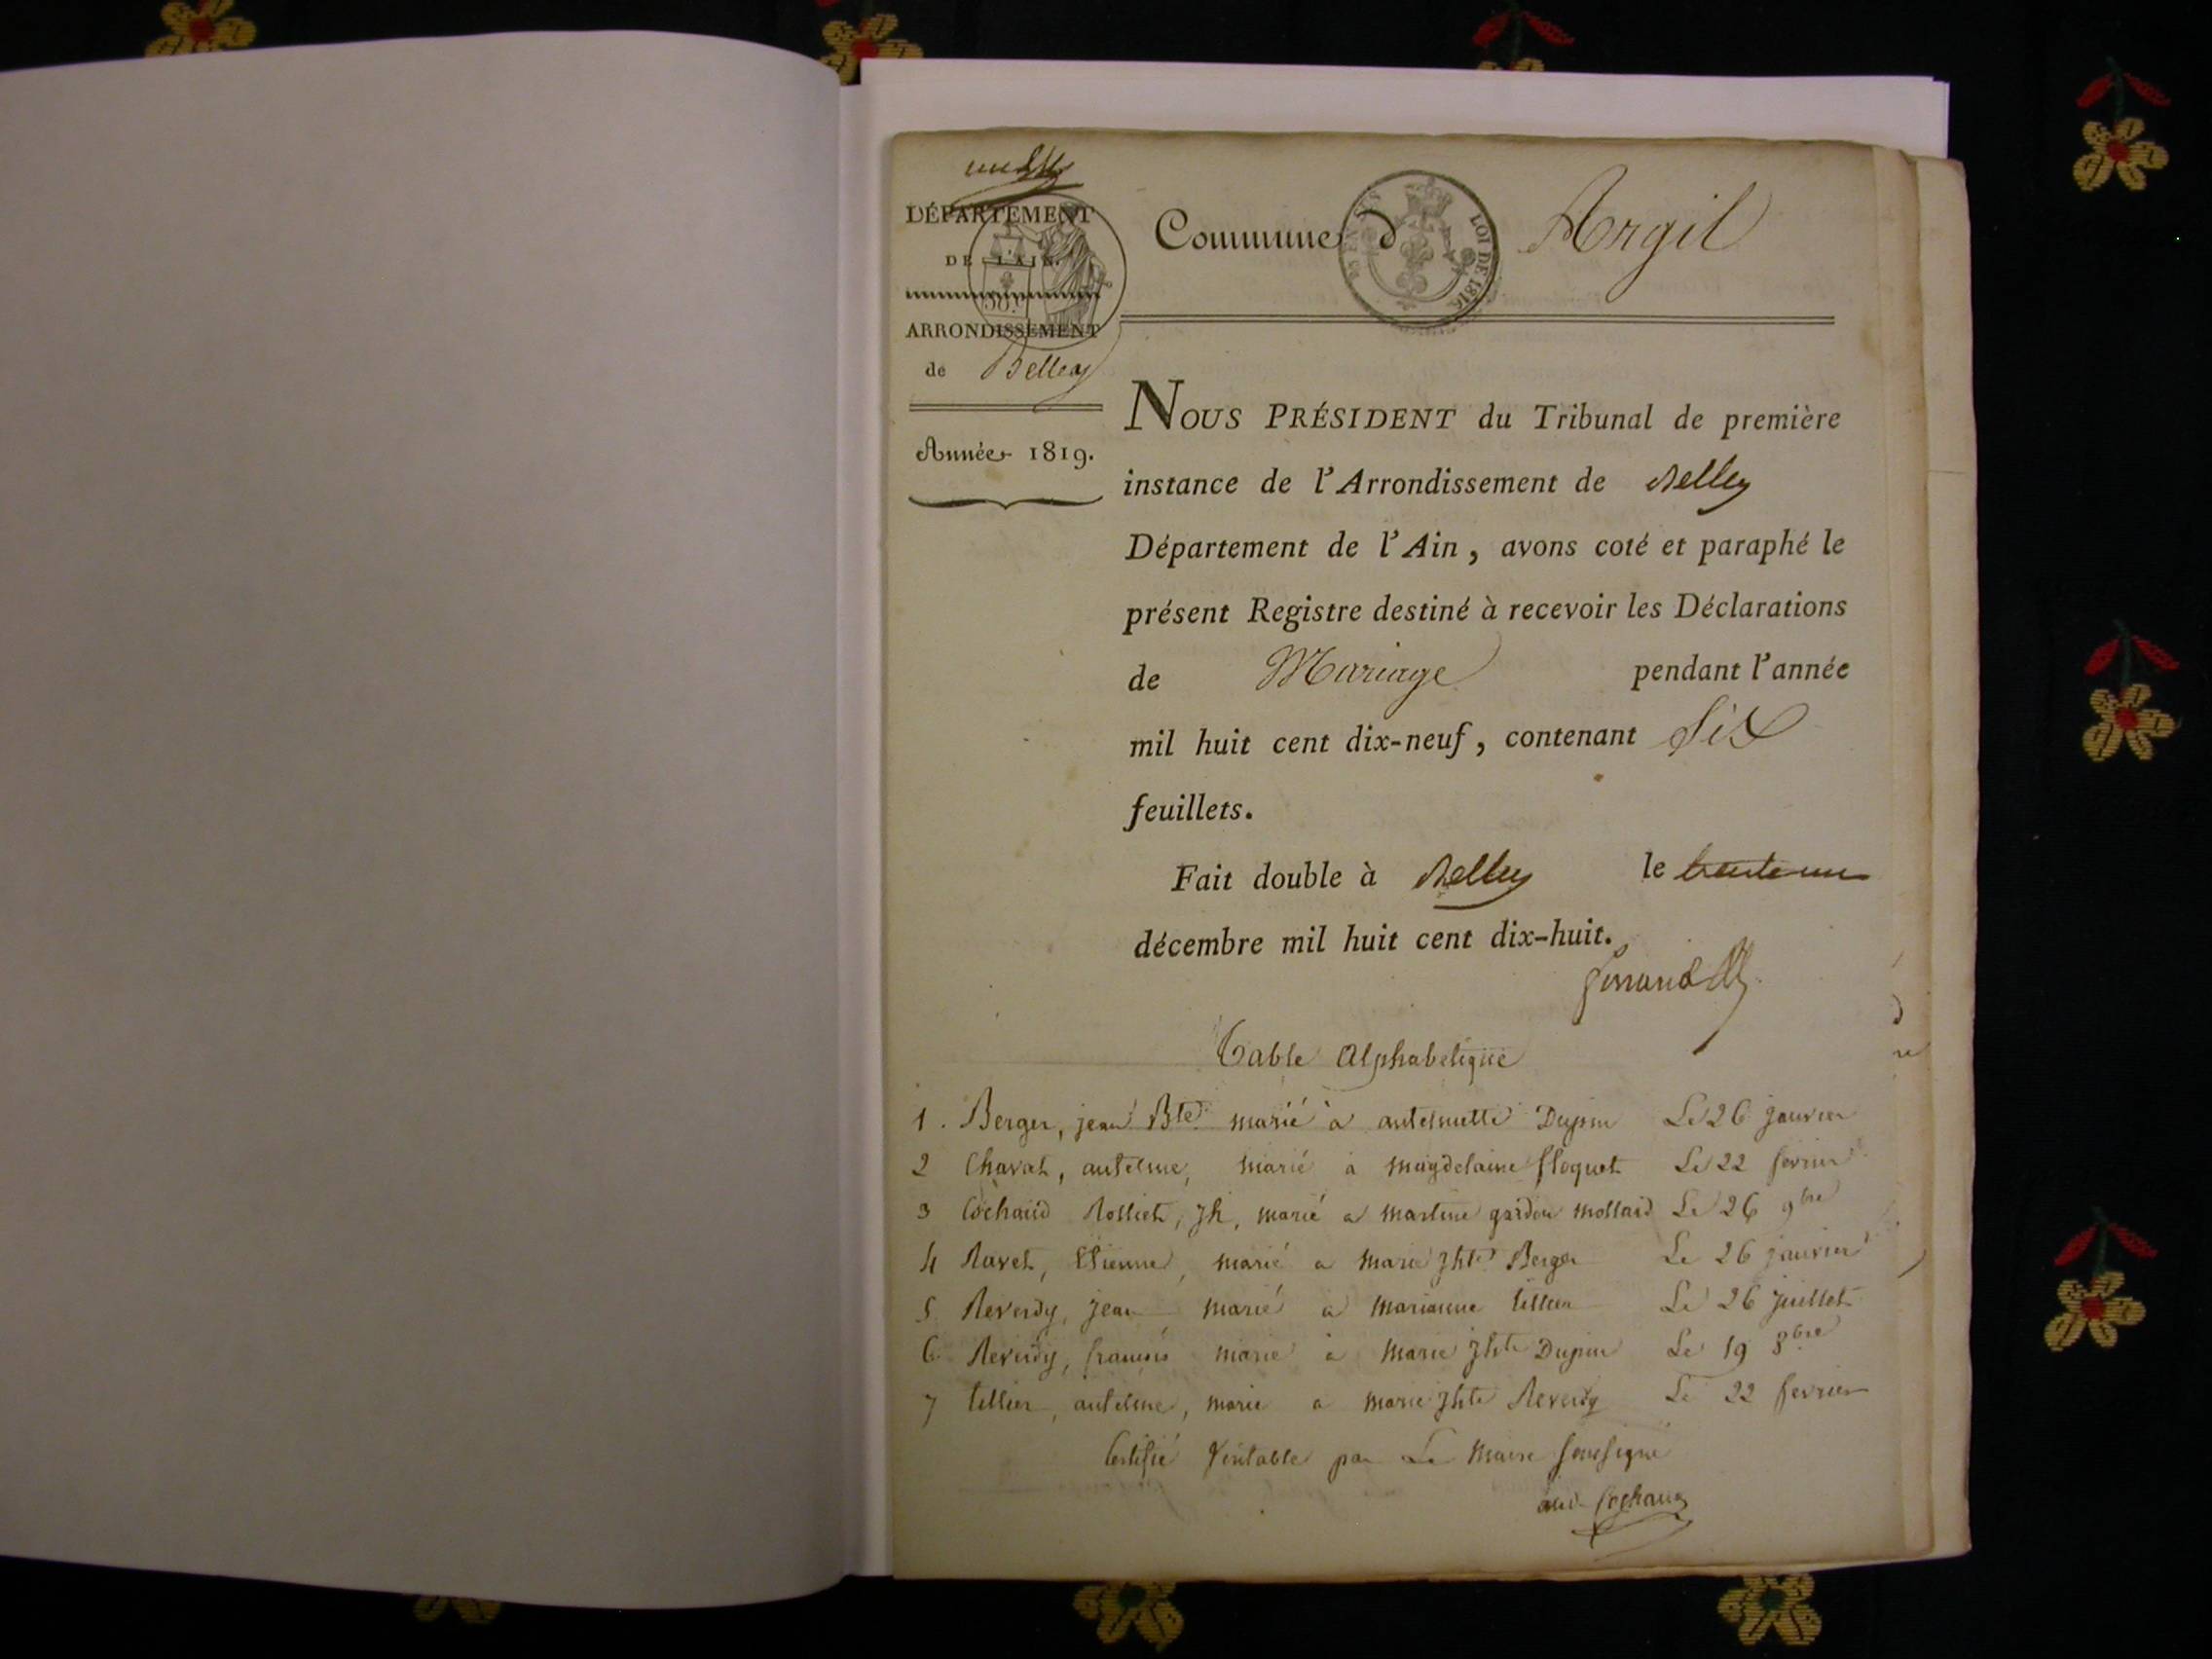 DÉPARTEMENT
DE L'AIN.
ARRONDISSEMENT
de Belley
Année 1819.
Commune d'Argil
LOI DE 1816
NOUS PRÉSIDENT du Tribunal de première
instance de l'Arrondissement de Belley
Département de l'Ain, avons coté et paraphé le
présent Registre destiné à recevoir les Déclarations
de Mariage pendant l'année
mil huit cent dix-neuf, contenant Six
feuillets.
Fait double à Belley le trente un
décembre mil huit cent dix-huit.
Table Alphabetique
1. Berger, jean Bte marié à antelmette Dupin Le 26 janvier
2 Chavat, antelme, marié a magdelaine floquet Le 22 fevrier
3 Cochaud Rossiet, Jh, marié a martine gardon mollard Le 26 9bre
4 Ravet, Etienne, marié a marie Jhte Berger Le 26 janvier
5 Reverdy, jean marié a marianne tellier Le 26 juillet
6 Reverdy, francois marié a marie Jhte Dupin Le 19 8bre
7 tellier, antelme, marie a marie Jhte Reverdy Le 22 fevrier
Certifié Véritable par Le Maire soussigné